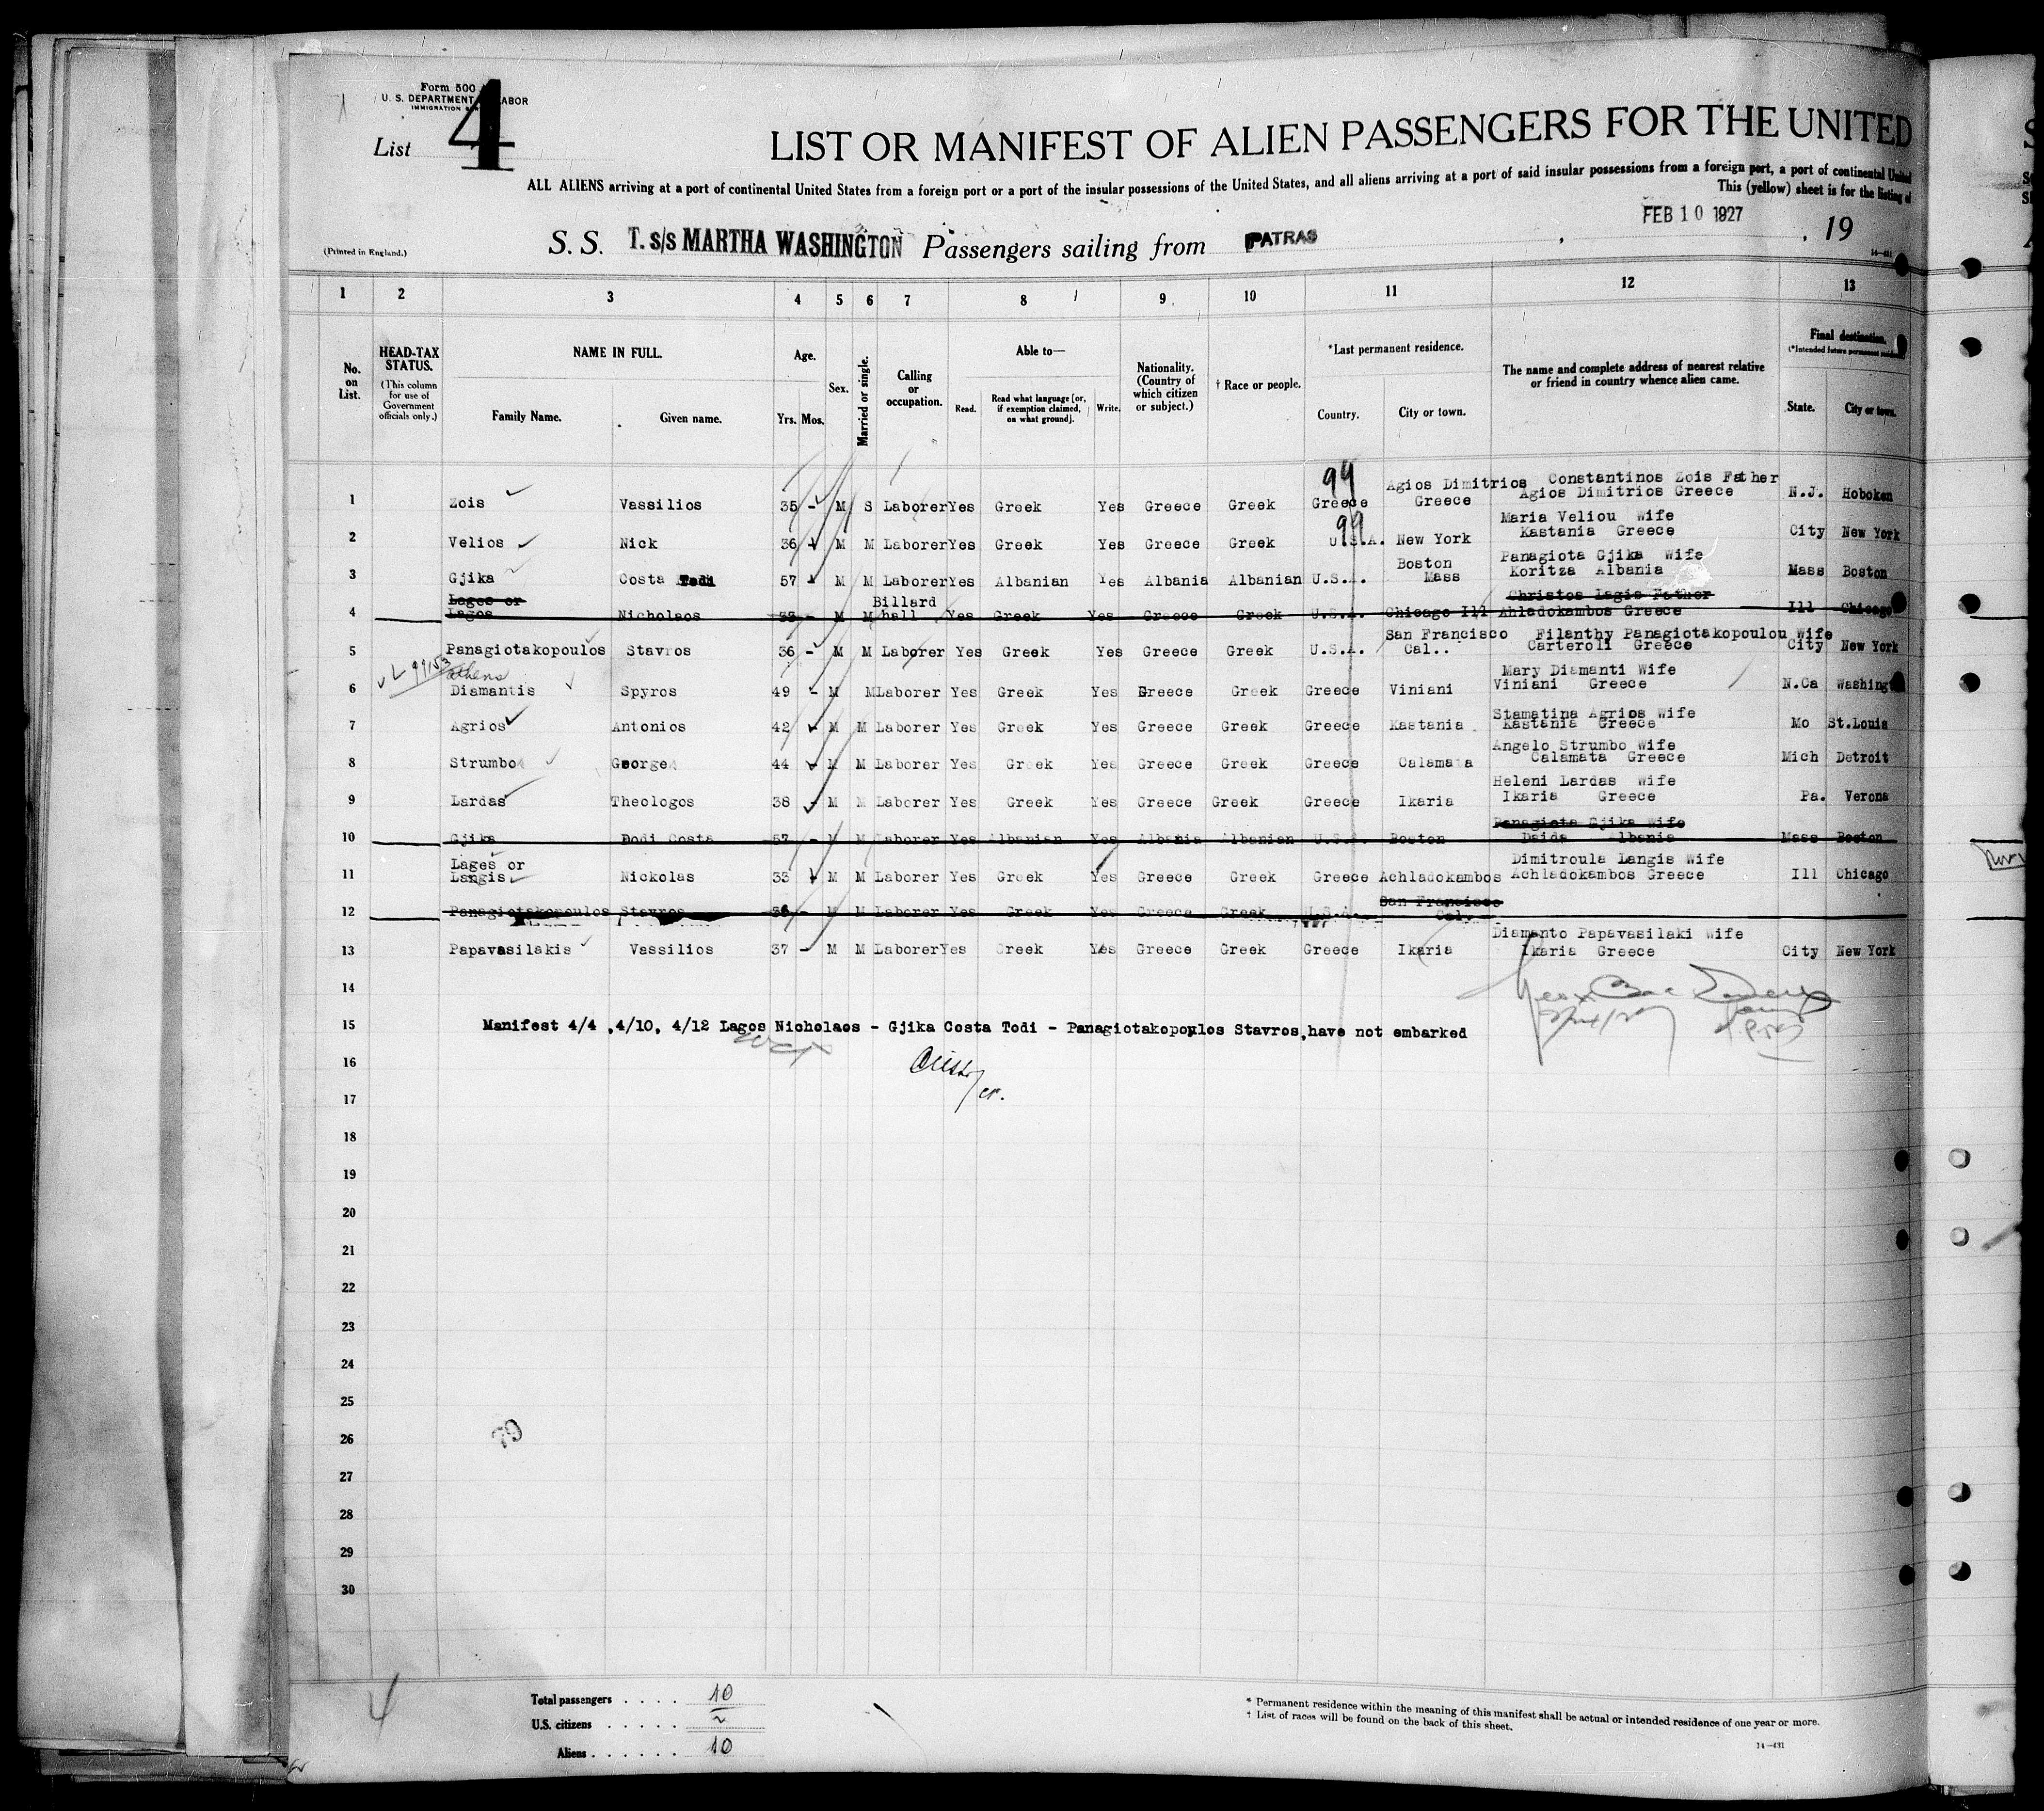 Form 500
U. S. DEPARTMENT LABOR
IMMIGRATION
List 4
LIST OR MANIFEST OF ALIEN PASSENGERS FOR THE UNITED
ALL ALIENS arriving at a port of continental United States from a foreign port or a port of the insular possessions of the United States, and all aliens arriving at a port of said insular possessions from a foreign port, a port of continental United
This (yellow) sheet is for the listing of
FEB 10 1927
(Printed in England.) S. S. T. s/s MARTHA WASHINGTON Passengers sailing from PATRAS , , 19
14—431
1 2 3 4 5 6 7 8 9 10 11 12 13
No. on List.
HEAD-TAX STATUS.
(This column for use of Government officials only.)
NAME IN FULL.
Family Name. Given name.
Age.
Yrs. Mos.
Sex.
Married or single.
Calling or occupation.
Able to—
Read. Read what language [or, if exemption claimed, on what ground]. Write.
Nationality. (Country of which citizen or subject.)
† Race or people.
*Last permanent residence.
Country. City or town.
The name and complete address of nearest relative or friend in country whence alien came.
Final destination.
(*Intended future permanent
State. City or town.
99
Agios Dimitrios Constantinos Zois Father
1 Zois Vassilios 35 - M S Laborer Yes Greek Yes Greece Greek Greece Greece Agios Dimitrios Greece N.J. Hoboken
99
Maria Veliou Wife
2 Velios Nick 36 M M Laborer Yes Greek Yes Greece Greek U.S.A. New York Kastania Greece City New York
Boston Panagiota Gjika Wife
3 Gjika Costa Todi 57 M M Laborer Yes Albanian Yes Albania Albanian U.S.A. Mass Koritza Albania Mass Boston
Lages or Billard Christos Lagis Father
4 Lagos Nicholaos 33 - M M hall Yes Greek Yes Greece Greek U.S.A. Chicago Ill Ahladokambos Greece Ill Chicago
San Francisco Filanthy Panagiotakopoulou Wife
5 Panagiotakopoulos Stavros 36 - M M Laborer Yes Greek Yes Greece Greek U.S.A. Cal.. Carteroli Greece City New York
Athens
Mary Diamanti Wife
6 Diamantis Spyros 49 - M M Laborer Yes Greek Yes Greece Greek Greece Viniani Viniani Greece N.Ca
Stamatina Agrios Wife
7 Agrios Antonios 42 - M M Laborer Yes Greek Yes Greece Greek Greece Kastania Kastania Greece Mo St.Louis
Angelo Strumbo Wife
8 Strumbo George 44 - M M Laborer Yes Greek Yes Greece Greek Greece Calamata Calamata Greece Mich Detroit
Heleni Lardas Wife
9 Lardas Theologos 38 - M M Laborer Yes Greek Yes Greece Greek Greece Ikaria Ikaria Greece Pa. Verona
Panagiota Gjika Wife
10 Gjika Dodi Costa 57 - M M Laborer Yes Albanian Yes Albania Albanian U.S.A. Boston Albania Mass Boston
Lages or Dimitroula Langis Wife
11 Langis Nickolas 33 M M Laborer Yes Greek Yes Greece Greek Greece Achladokambos Achladokambos Greece Ill Chicago
San Francisco
12 Panagiotakopoulos Stavros 36 - M M Laborer Yes Greek Yes Greece Greek U.S.A. Cal.
Diamanto Papavasilaki Wife
13 Papavasilakis Vassilios 37 - M M Laborer Yes Greek Yes Greece Greek Greece Ikaria Ikaria Greece City New York
14
15 Manifest 4/4 ,4/10, 4/12 Lagos Nicholaos - Gjika Costa Todi - Panagiotakopoylos Stavros,have not embarked
16
17
18
19
20
21
22
23
24
25
26
79
27
28
29
30
4
Total passengers . . . . 10
U.S. citizens . . . . .
Aliens . . . . . . 10
* Permanent residence within the meaning of this manifest shall be actual or intended residence of one year or more.
† List of races will be found on the back of this sheet.
14—431